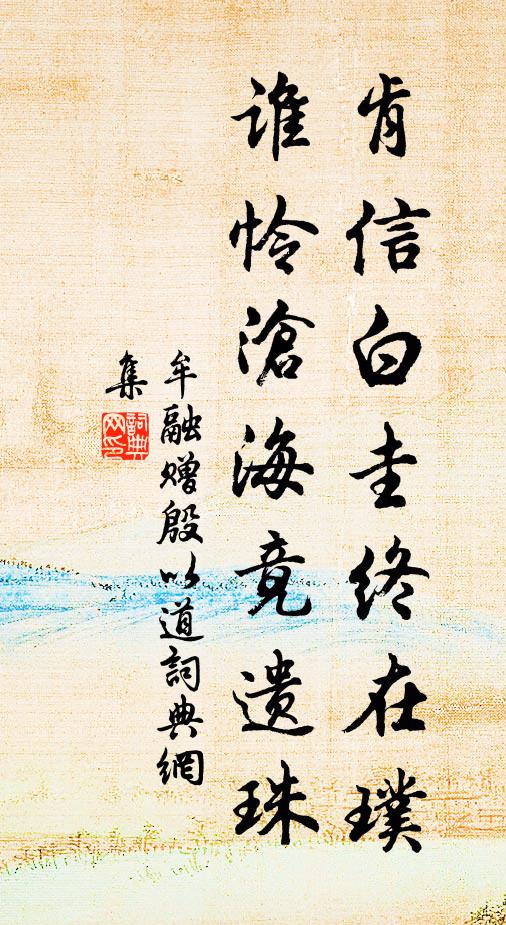 肯信白圭终在璞
谁怜滄海竟遗珠
牟融赠殷以道詞典網
集
詞典
网印